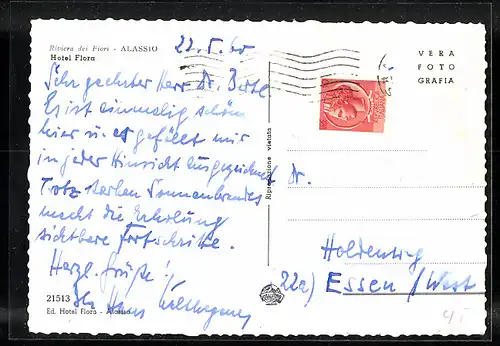 Riviera dei Fiori - ALASSIO
Hotel Flora
22.5.60
VERA
FOTO
GRAFIA
Sehr geehrter Herr Dr.
Es ist einmalig schön
hier u. es gefällt mir
in jeder Hinsicht ausgezeichnet
Trotz starken Sonnenbrandes
macht die Erholung
sichtbare Fortschritte.
Herzl. Grüße!
Ihr Hans
Riproduzione vietata
Dr.
22a) Essen / West
21513
Ed. Hotel Flora - Alassio